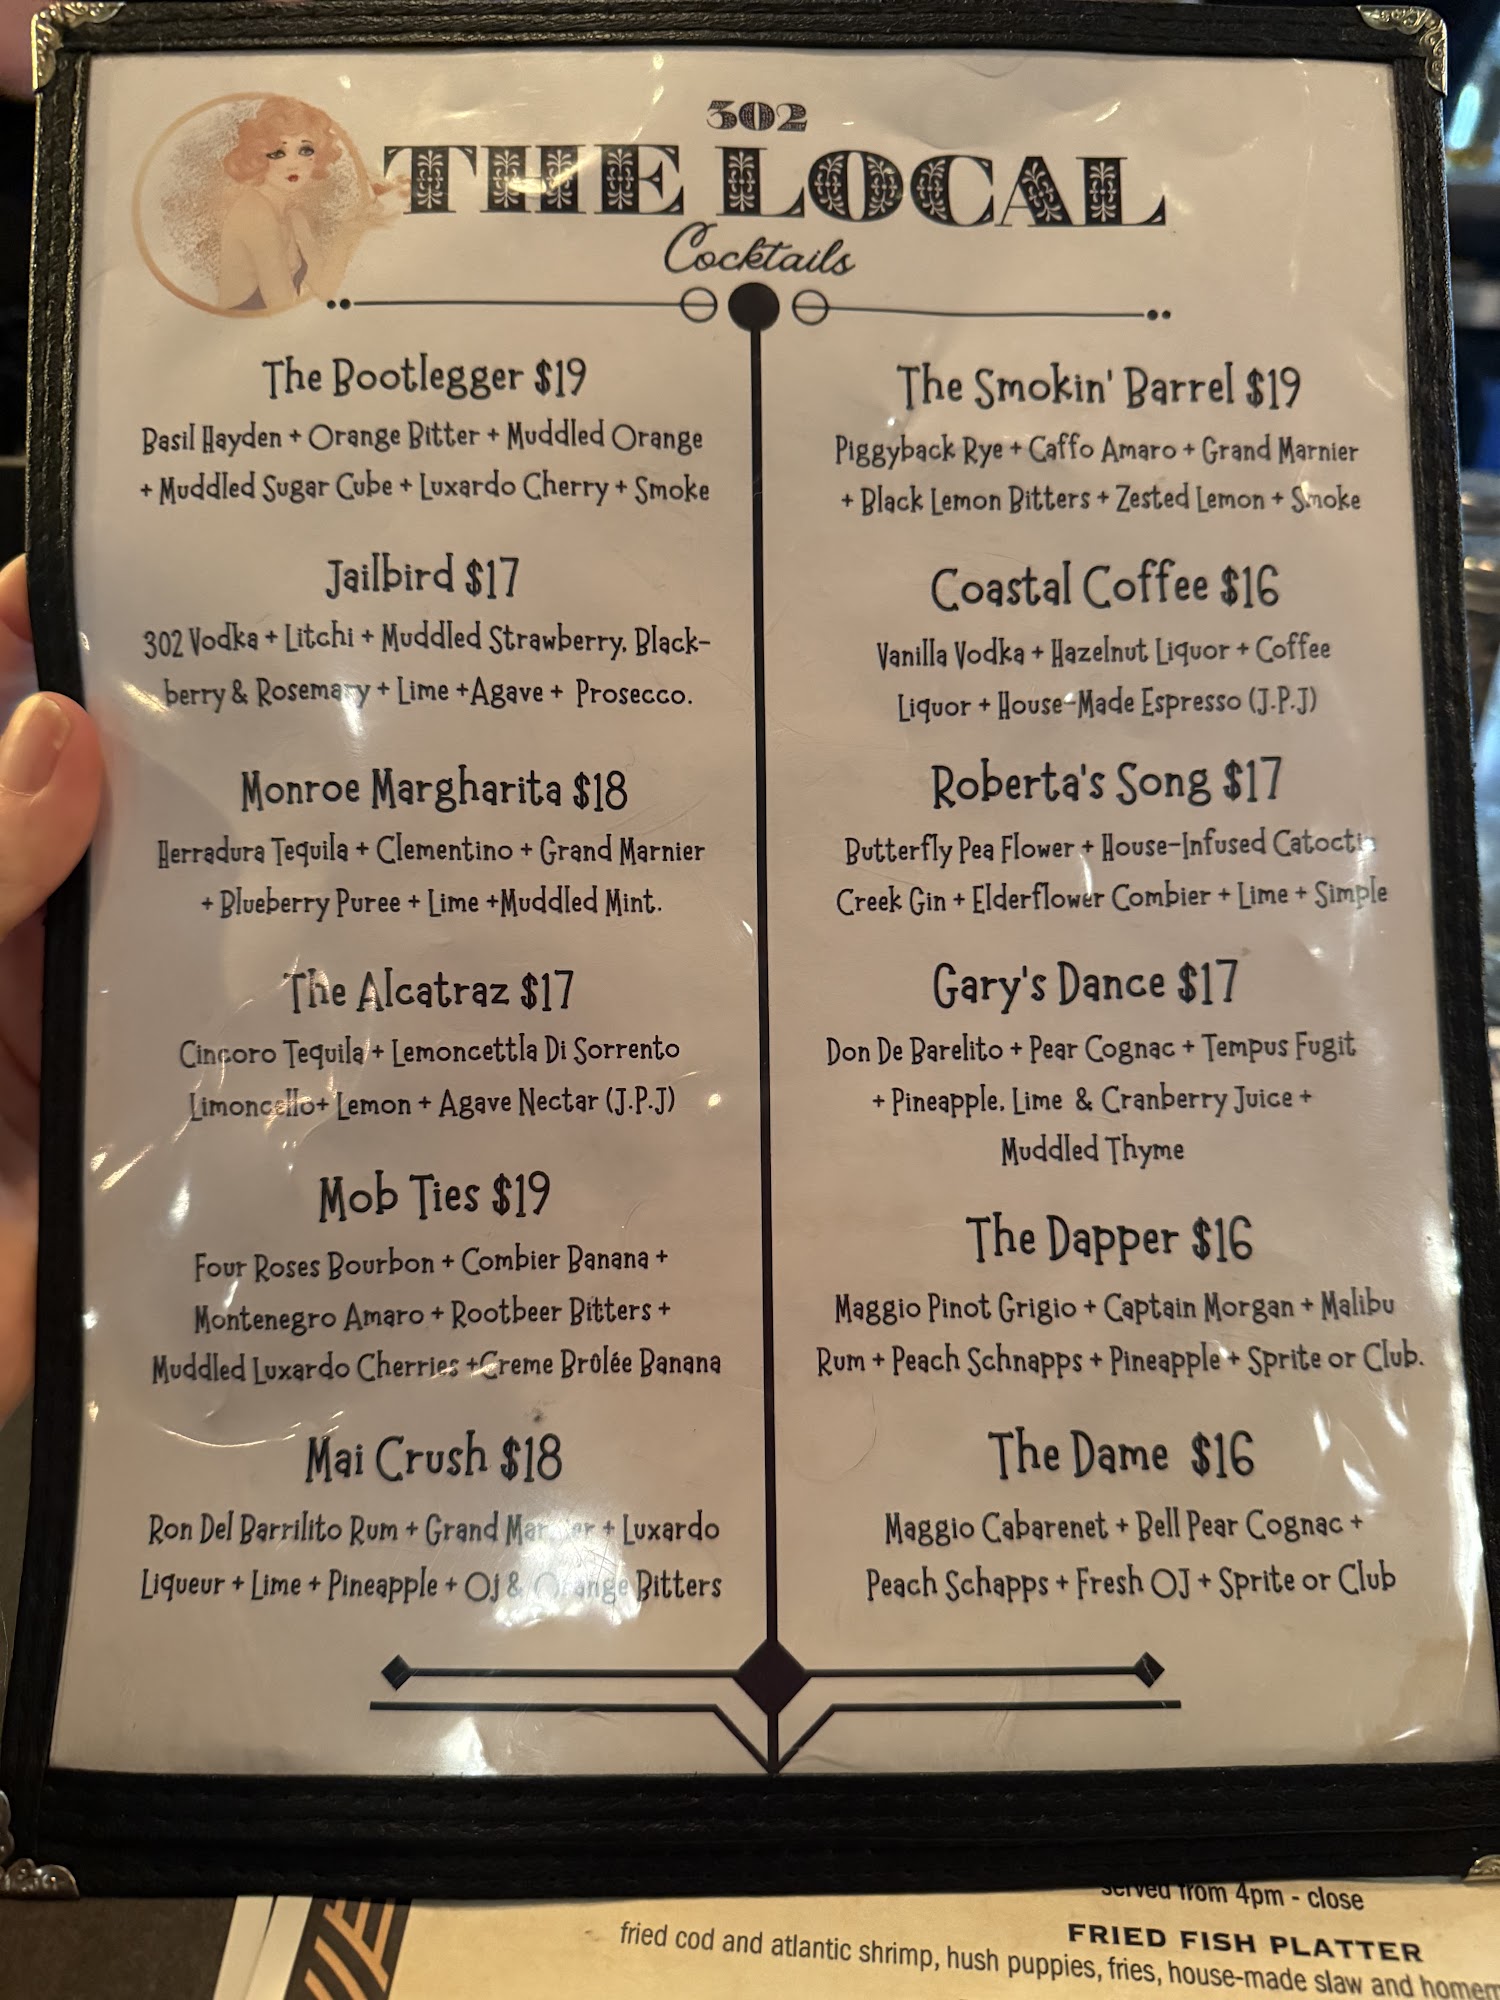 302
THE LOCAL
Cocktails
The Bootlegger $19
Basil Hayden + Orange Bitter + Muddled Orange
+ Muddled Sugar Cube + Luxardo Cherry + Smoke
Jailbird $17
302 Vodka + Litchi + Muddled Strawberry, Black-
berry & Rosemary + Lime +Agave + Prosecco.
Monroe Margharita $18
Herradura Tequila + Clementino + Grand Marnier
+ Blueberry Puree + Lime +Muddled Mint.
The Alcatraz $17
Cincoro Tequila + Lemoncettla Di Sorrento
Limoncello+ Lemon + Agave Nectar (J.P.J)
Mob Ties $19
Four Roses Bourbon + Combier Banana +
Montenegro Amaro + Rootbeer Bitters +
Muddled Luxardo Cherries +Creme Brûlée Banana
Mai Crush $18
Ron Del Barrilito Rum + Grand Marnier + Luxardo
Liqueur + Lime + Pineapple + OJ & Orange Bitters
The Smokin' Barrel $19
Piggyback Rye + Caffo Amaro + Grand Marnier
+ Black Lemon Bitters + Zested Lemon + Smoke
Coastal Coffee $16
Vanilla Vodka + Hazelnut Liquor + Coffee
Liquor + House-Made Espresso (J.P.J)
Roberta's Song $17
Butterfly Pea Flower + House-Infused Catoctin
Creek Gin + Elderflower Combier + Lime + Simple
Gary's Dance $17
Don De Barelito + Pear Cognac + Tempus Fugit
+ Pineapple, Lime & Cranberry Juice +
Muddled Thyme
The Dapper $16
Maggio Pinot Grigio + Captain Morgan + Malibu
Rum + Peach Schnapps + Pineapple + Sprite or Club.
The Dame $16
Maggio Cabarenet + Bell Pear Cognac +
Peach Schapps + Fresh OJ + Sprite or Club
served from 4pm - close
FRIED FISH PLATTER
fried cod and atlantic shrimp, hush puppies, fries, house-made slaw and